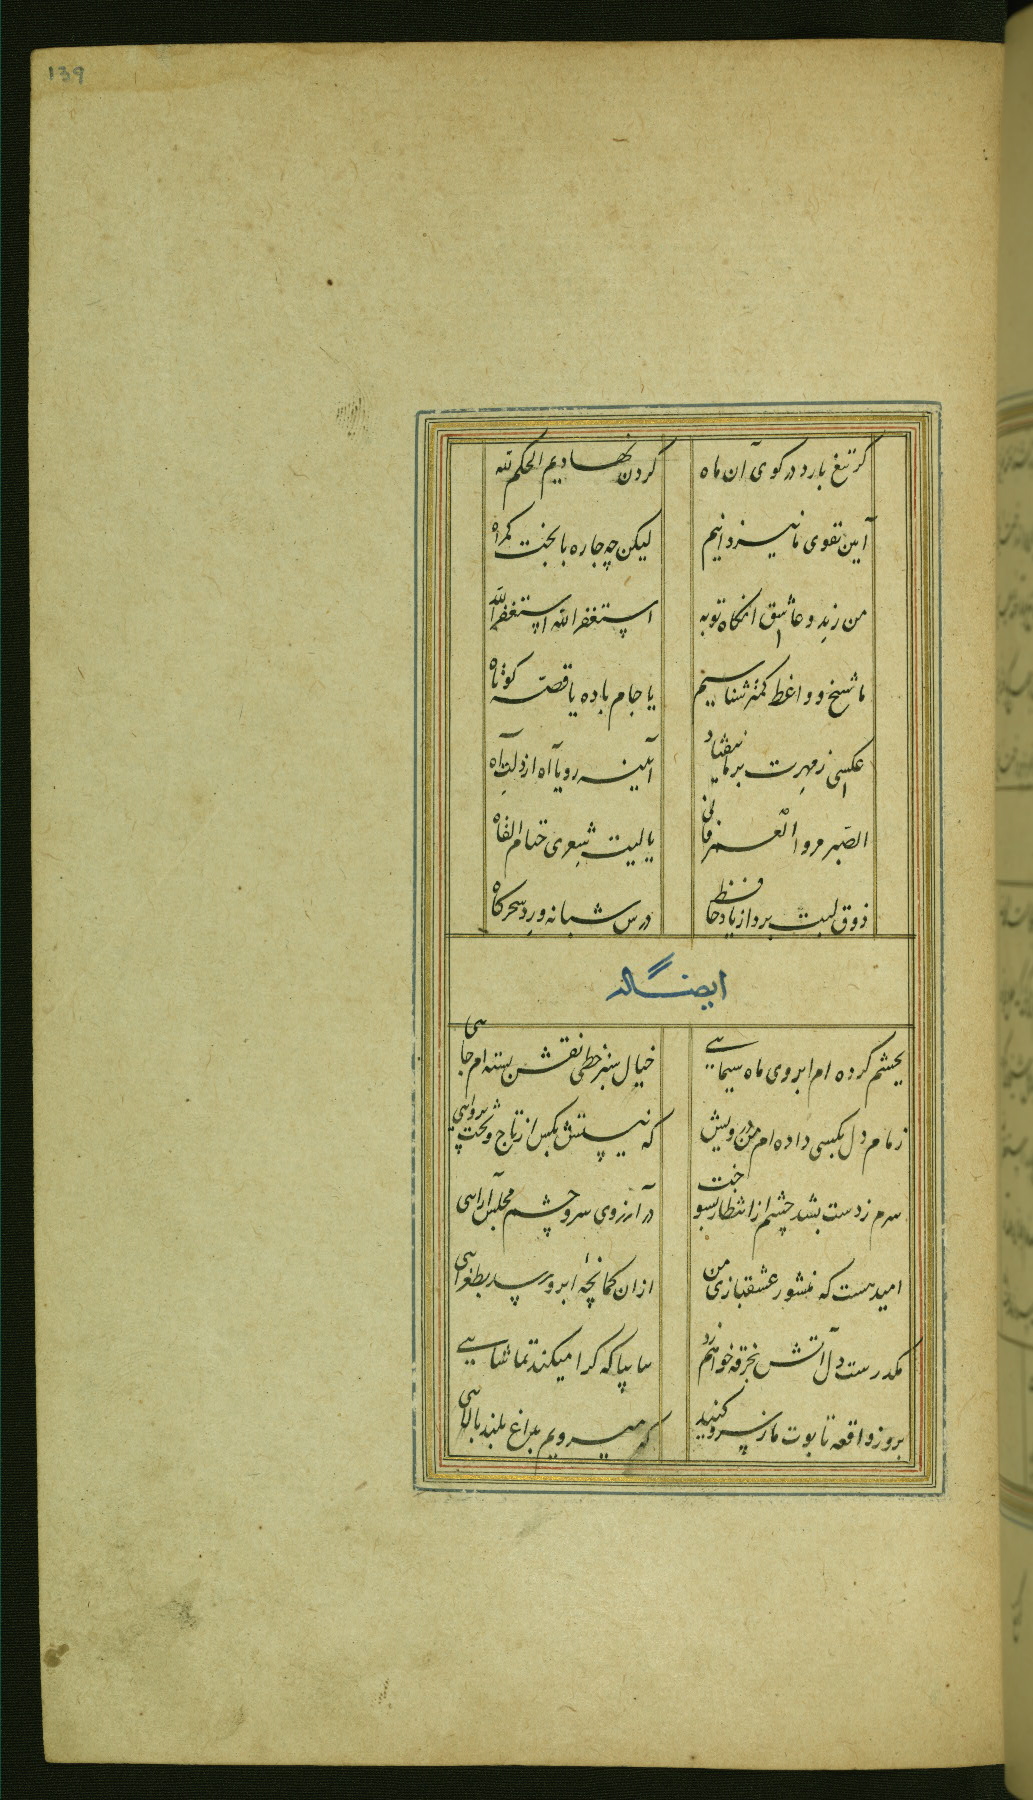 139
کر تیغ بارد در کوی آن ماه
کردن نهادیم الحکم لله
آیین تقوی ما نیز دانیم
لیکن چه چاره با بخت کمراه
من رند و عاشق انکاه توبه
استغفر الله استغفر الله
ما شیخ و واعظ کمتر شناسیم
یا جام باده یا قصّه کوتاه
عکسی ز مهرت بر ما نیفتاد
آیینه رویا آه از دلت آه
الصّبر مر و العمر فانی
یا لیت شعری حتام القاه
ذوق لبت برد از یاد حافظ
درس شبانه ورد سحرکاه
ایضاً له
بچشم کرده ام ابروی ماه سیمایی
خیال سبز خطی نقش بسته ام جایی
زمام دل بکسی داده ام من درویش
که نیستش بکس از تاج و تخت پروایی
سرم ز دست بشد چشم از انتظار بسوخت
در آرزوی سر و چشم مجلس آرایی
امید هست که منشور عشقبازی من
از ان کمانچهٔ ابرو رسد بطغرایی
مکدرست دل آتش بخرقه خواهم زد
بیا بیا که کرا میکند تماشایی
بروز واقعه تابوت ما ز سرو کنید
که میرویم بداغ بلند بالایی